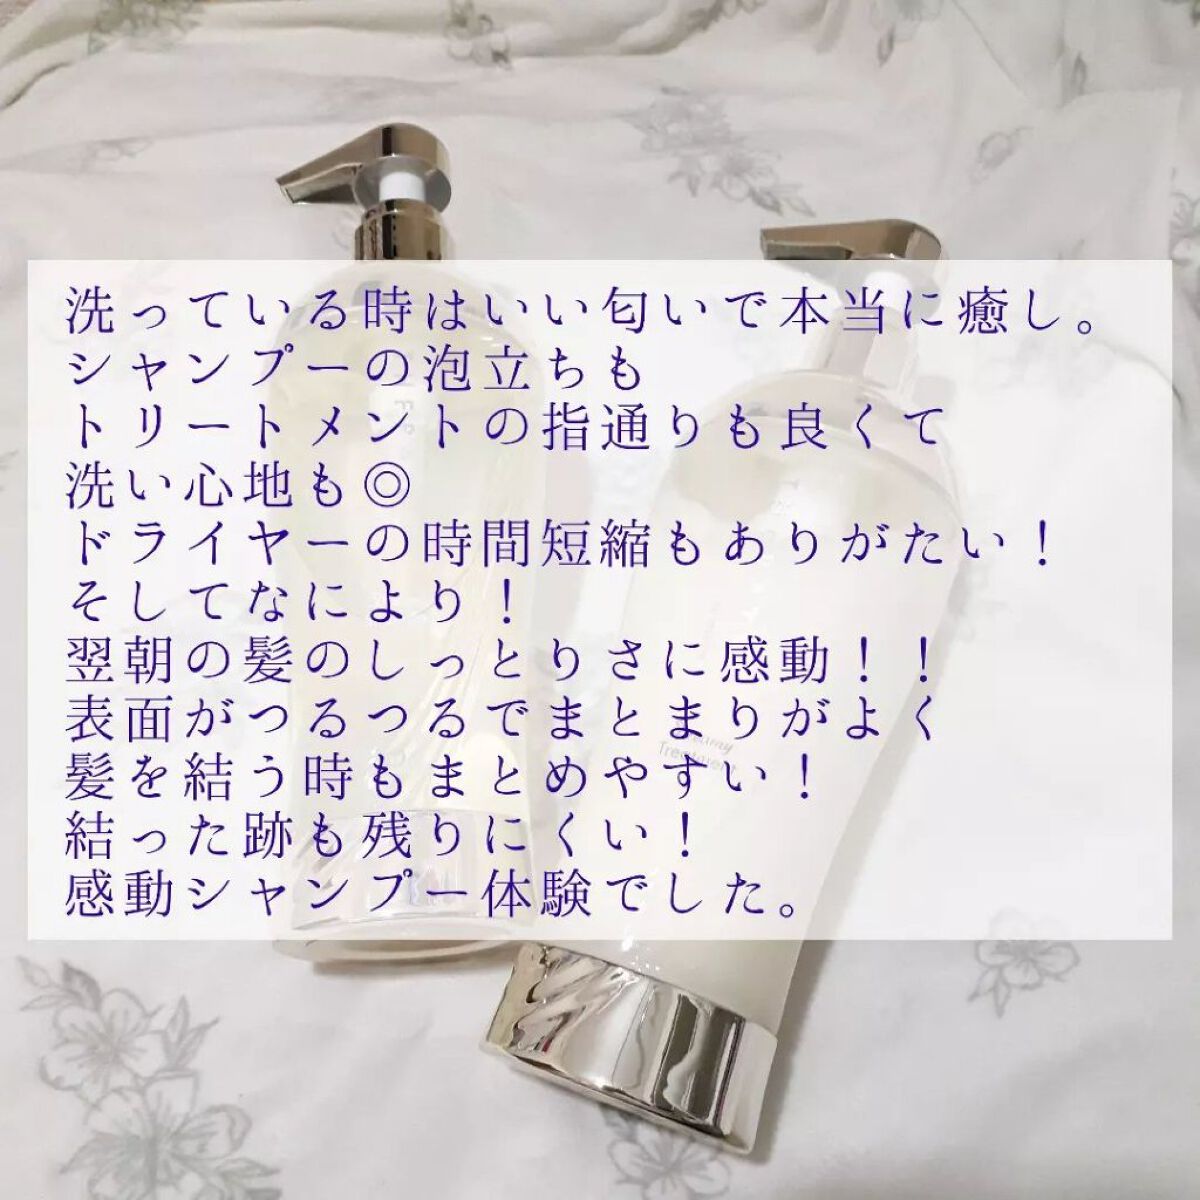 洗っている時はいい匂いで本当に癒し。
シャンプーの泡立ちも
トリートメントの指通りも良くて
洗い心地も◎
ドライヤーの時間短縮もありがたい！
そしてなにより！
翌朝の髪のしっとりさに感動！！
表面がつるつるでまとまりがよく
髪を結う時もまとめやすい！
結った跡も残りにくい！
感動シャンプー体験でした。
Treatment